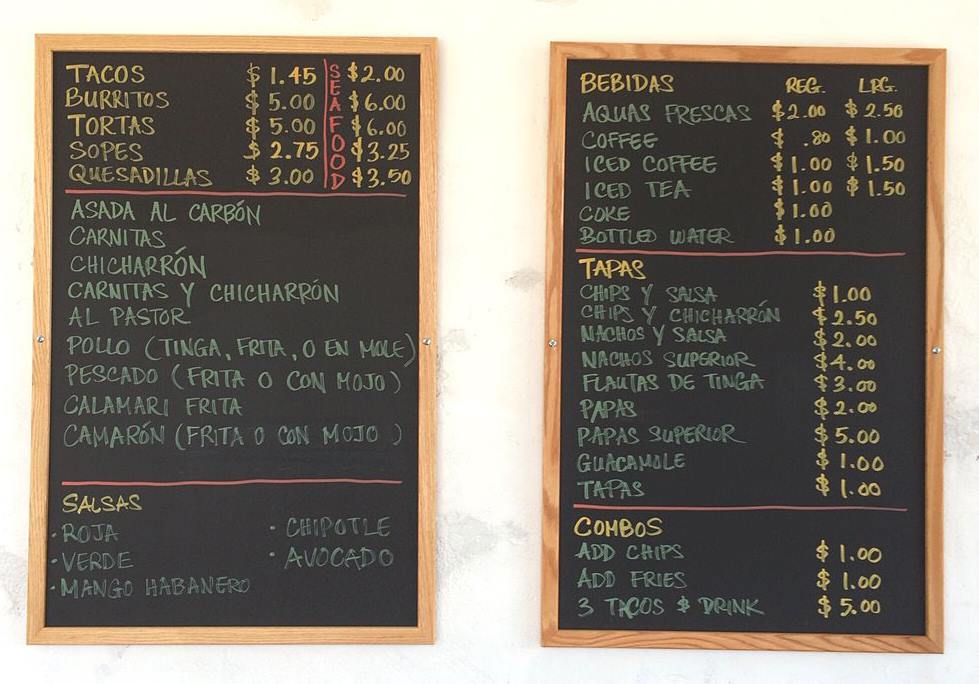 TACOS $ 1.45 $2.00
BURRITOS $ 5.00 $ 6.00
TORTAS $ 5.00 $ 6.00
SOPES $ 2.75 $3.25
QUESADILLAS $ 3.00 $3.50
SEAFOOD
ASADA AL CARBÓN
CARNITAS
CHICHARRÓN
CARNITAS Y CHICHARRÓN
AL PASTOR
POLLO (TINGA, FRITA, O EN MOLE)
PESCADO (FRITA O CON MOJO)
CALAMARI FRITA
CAMARÓN (FRITA O CON MOJO )
SALSAS
· ROJA
· VERDE
· MANGO HABANERO
· CHIPOTLE
· AVOCADO
BEBIDAS REG. LRG.
AQUAS FRESCAS $2.00 $ 2.50
COFFEE $ .80 $ 1.00
ICED COFFEE $1.00 $1.50
ICED TEA $1.00 $ 1.50
COKE $1.00
BOTTLED WATER $1.00
TAPAS
CHIPS Y SALSA $1.00
CHIPS Y CHICHARRÓN $2.50
NACHOS Y SALSA $2.00
NACHOS SUPERIOR $4.00
FLAUTAS DE TINGA $3.00
PAPAS $2.00
PAPAS SUPERIOR $5.00
GUACAMOLE $1.00
TAPAS $1.00
COMBOS
ADD CHIPS $ 1.00
ADD FRIES $ 1.00
3 TACOS & DRINK $ 5.00